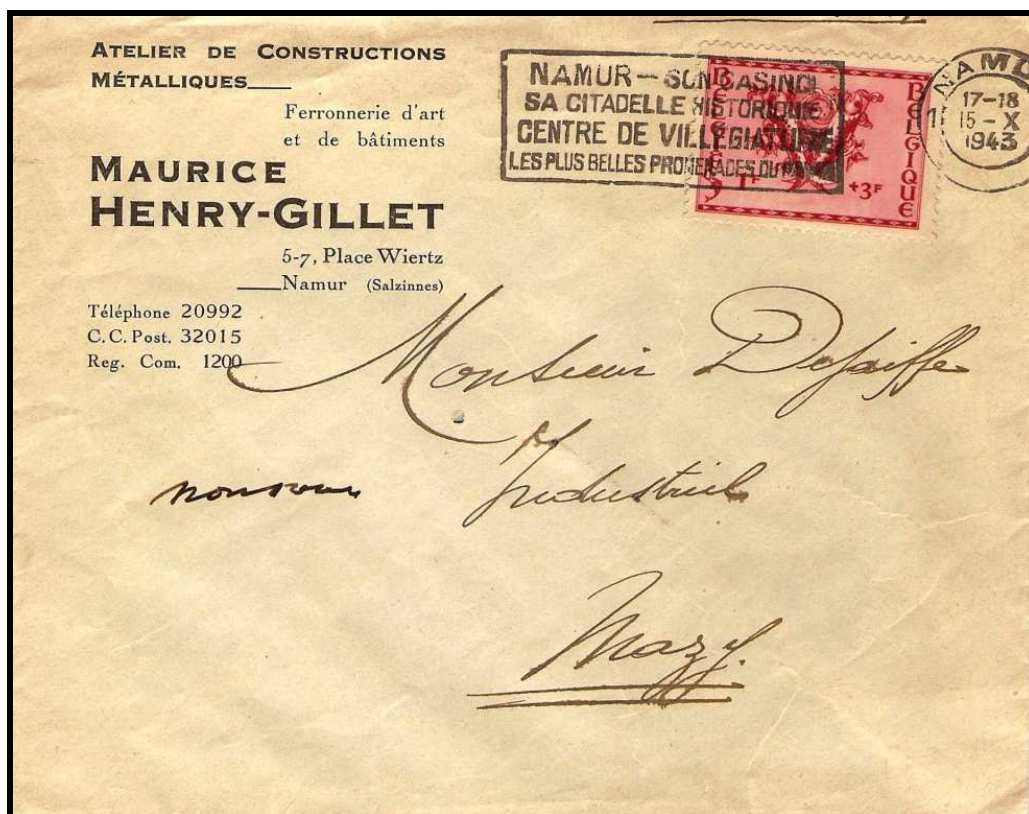 ATELIER DE CONSTRUCTIONS
MÉTALLIQUES
Ferronnerie d'art
et de bâtiments
MAURICE
HENRY-GILLET
5-7, Place Wiertz
Namur (Salzinnes)
Téléphone 20992
C.C. Post. 32015
Reg. Com. 1200
NAMUR – SON CASINO
SA CITADELLE HISTORIQUE
CENTRE DE VILLÉGIATURE
LES PLUS BELLES PROMENADES DU PAYS
BELGIQUE
1F +3F
NAMU
17-18
15-X
1943
Monsieur Defaiffe
Industriel
Mazy.